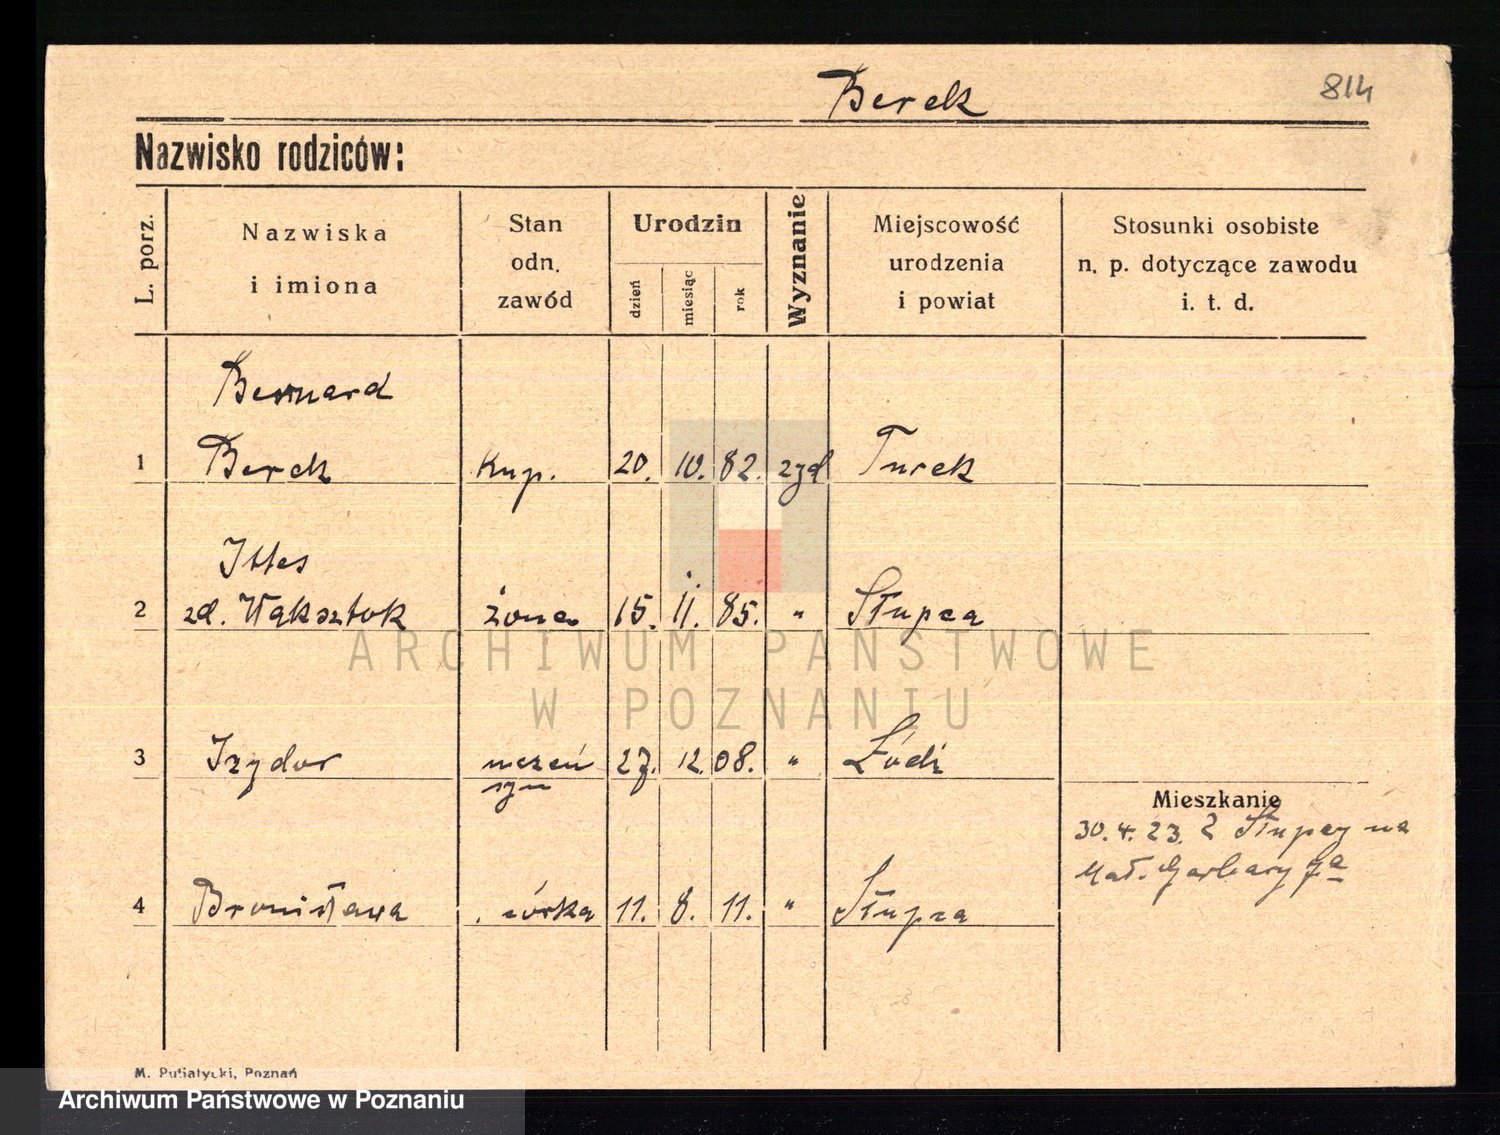 Berek
814
Nazwisko rodziców:
L. porz.
Nazwiska
i imiona
Stan
odn.
zawód
Urodzin
dzień
miesiąc
rok
Wyznanie
Miejscowość
urodzenia
i powiat
Stosunki osobiste
n. p. dotyczące zawodu
i. t. d.
Bernard
1 Berek Kup. 20. 10. 82. żyd Turek
Ittes
2 zd. Wąksztok żona 15. 11. 85. " Słupca
3 Izydor uczeń 27. 12. 08. " Łódź
syn
Mieszkanie
30.4.23. z Słupcy na
Mał. Garbary 7a
4 Bronisława córka 11. 8. 11. " Słupca
ARCHIWUM PAŃSTWOWE
W POZNANIU
M. Putiatycki, Poznań
Archiwum Państwowe w Poznaniu